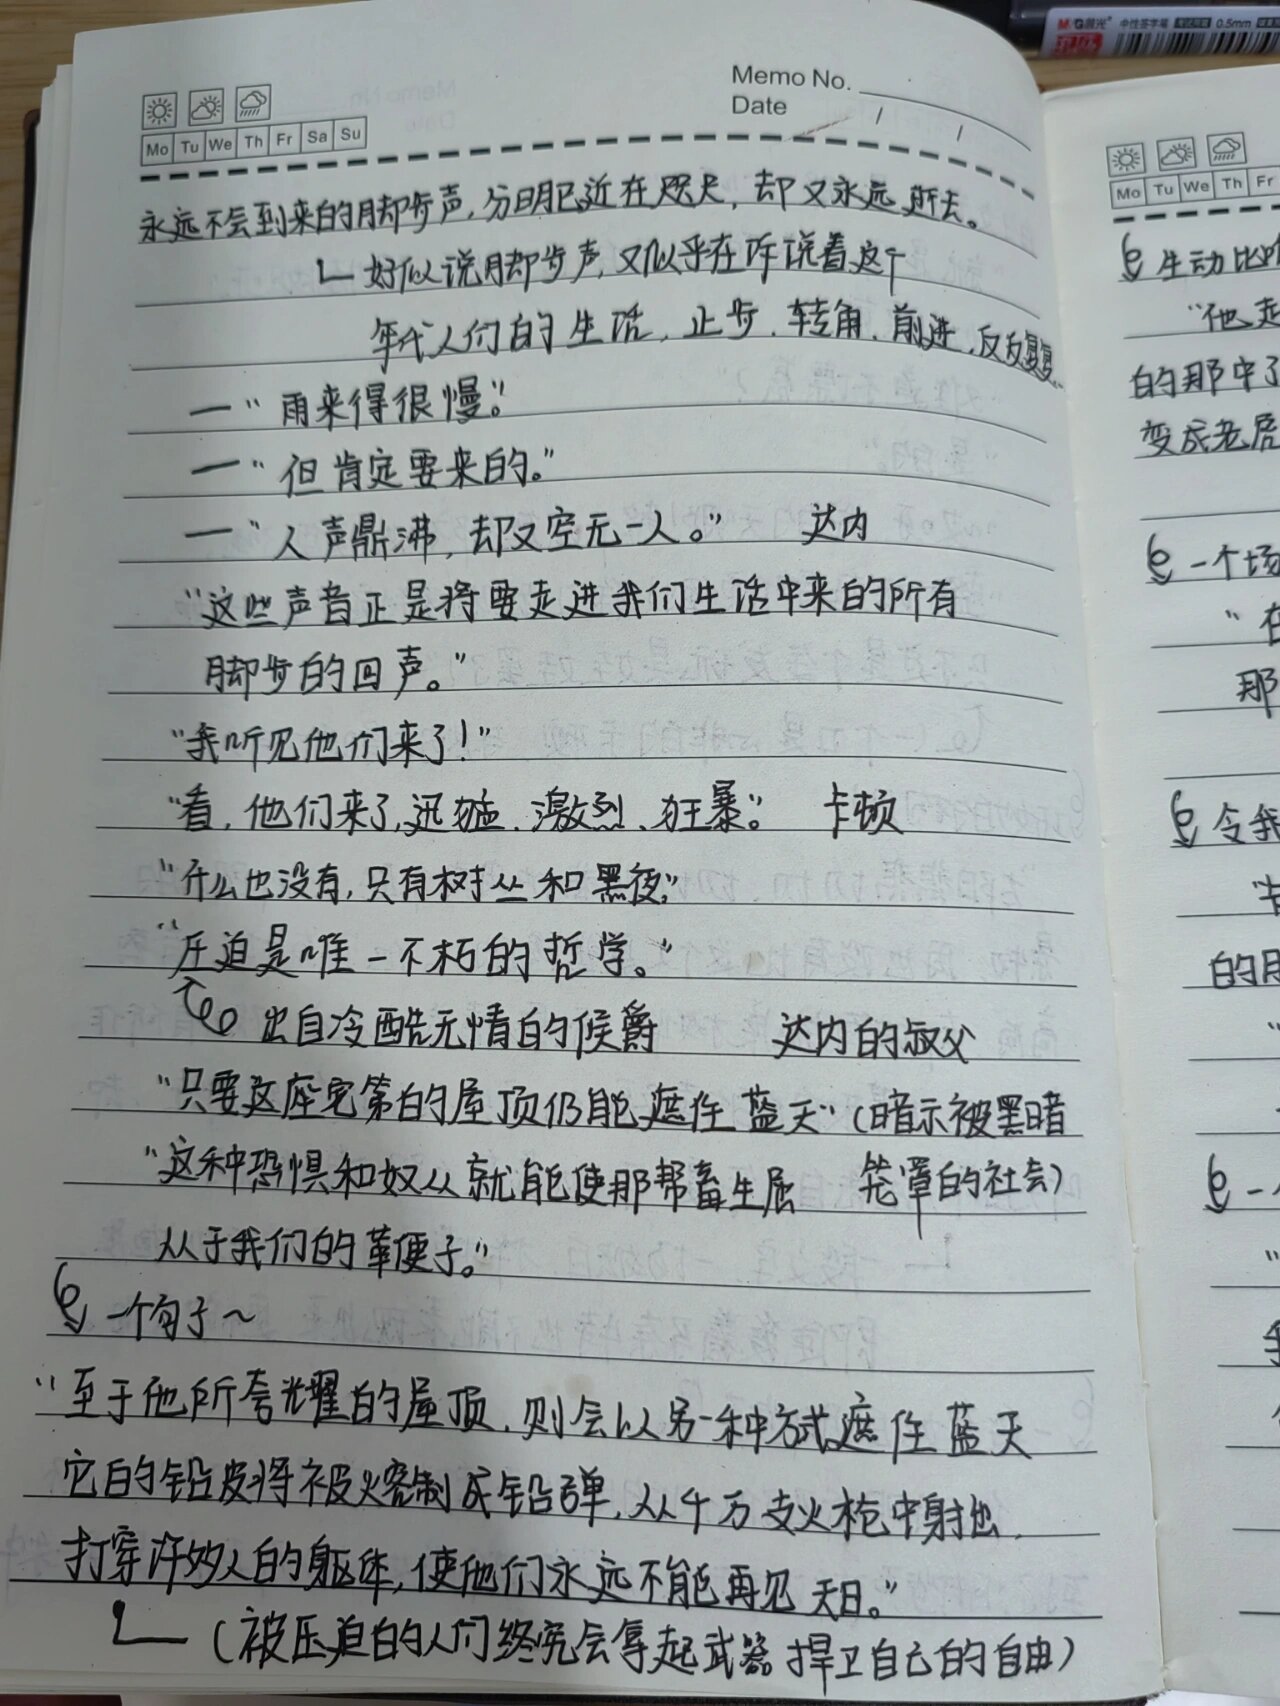 M&G晨光 中性签字笔 0.5mm
Memo No.
Date / /
Mo Tu We Th Fr Sa Su
永远不会到来的脚步声,分明已近在咫尺,却又永远逝去。
好似说脚步声,又似乎在诉说着这个
年代人们的生活,止步、转角、前进、反反复复…
—“雨来得很慢。”
—“但肯定要来的。”
—“人声鼎沸,却又空无一人。” 达内
“这些声音正是将要走进我们生活中来的所有
脚步的回声。”
“我听见他们来了!”
“看,他们来了,迅猛、激烈、狂暴。” 卡顿
“什么也没有,只有树丛和黑夜,”
“压迫是唯一不朽的哲学。”
出自冷酷无情的侯爵 达内的叔父
“只要这座宅第的屋顶仍能遮住蓝天”(暗示被黑暗
笼罩的社会)
“这种恐惧和奴从就能使那帮畜生屈
从于我们的革便子。”
一个句子~
“至于他所夸耀的屋顶,则会以另一种方式遮住蓝天
它的铅皮将被火熔制成铅弹,从千万支火枪中射出,
打穿许妙人的躯体,使他们永远不能再见天日。”
(被压迫的人们终究会拿起武器捍卫自己的自由)
Mo Tu We Th Fr
生动比
“他走
的那中了
变成老虎
一个场
“在
那
令我
的
一
“